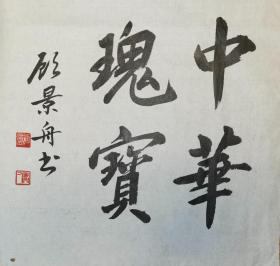 中華
瑰寶
顧景舟书